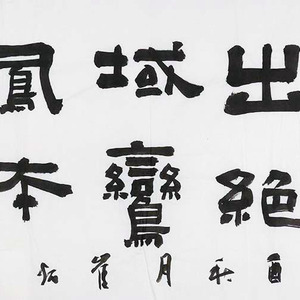 出絕
域鸞
鳳本
酉秋月崔